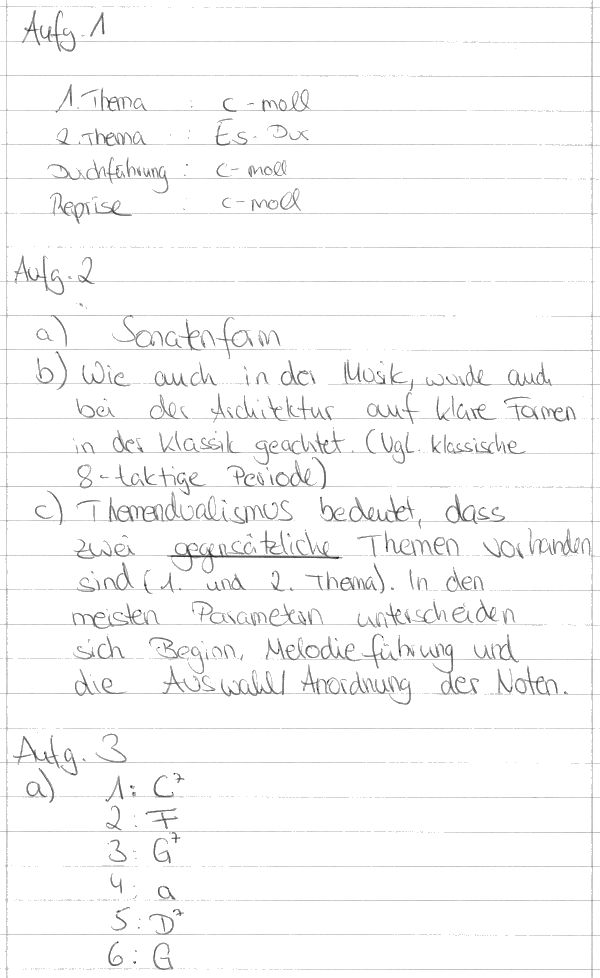 Aufg. 1
1. Thema : c-moll
2. Thema : Es-Dur
Durchführung : c-moll
Reprise : c-moll
Aufg. 2
a) Sonatenform
b) Wie auch in der Musik, wurde auch
bei der Architektur auf klare Formen
in der Klassik geachtet. (Vgl. klassische
8-taktige Periode)
c) Themendualismus bedeutet, dass
zwei gegensätzliche Themen vorhanden
sind (1. und 2. Thema). In den
meisten Parametern unterscheiden
sich Beginn, Melodieführung und
die Auswahl/Anordnung der Noten.
Aufg. 3
a) 1: C⁷
2: F
3: G⁷
4: a
5: D⁷
6: G